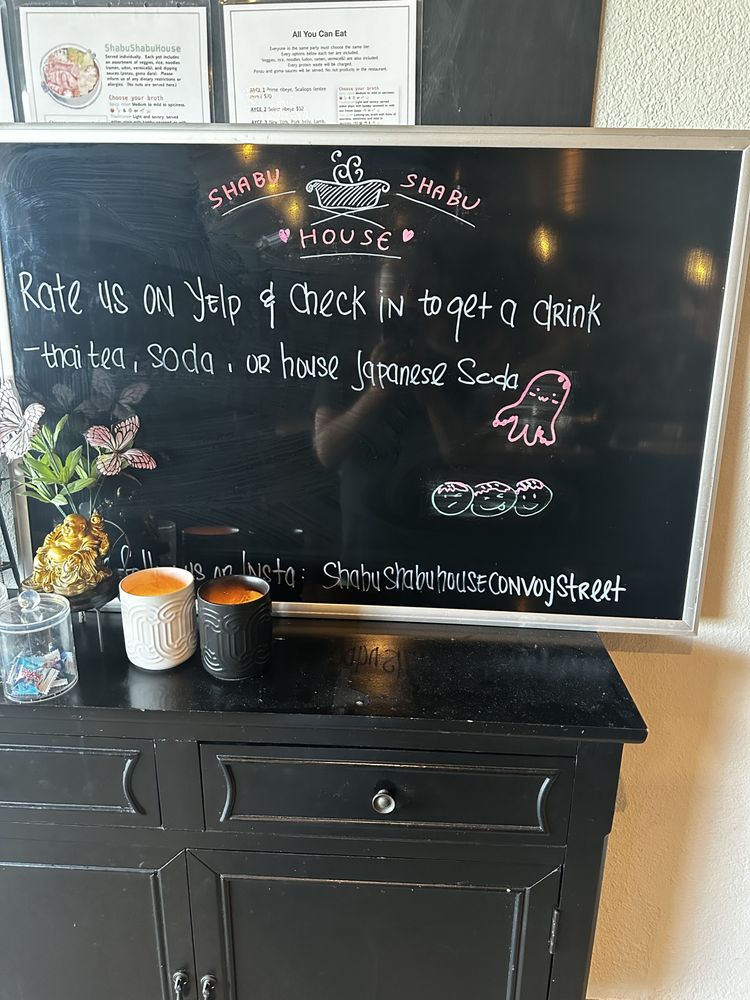 ShabuShabuHouse
Served individually. Each pot includes an assortment of veggies, rice, noodles (ramen, udon, vermicelli) and dipping sauces (ponzu, goma dare). Please inform us of any dietary restrictions or allergies. (No nuts are served here.)
Choose your broth
Medium to mild in spiciness.
Light and savory
All You Can Eat
Everyone in the same party must choose the same tier.
Every options below each tier are included.
Veggies, rice, noodles (udon, ramen, vermicelli) are also included.
Every protein waste will be charged.
Ponzu and goma sauces will be served. No nut products in the restaurant.
AYCE 1 Prime ribeye, Scallops
AYCE 2 Select ribeye $32
AYCE 3 New York, Pork belly, Lamb,
Choose your broth
Medium to mild in spiciness.
SHABU SHABU
HOUSE
Rate us ON Yelp & Check iN to get a drink
- thai tea, Soda, OR house Japanese Soda
follow us on Insta: ShabuShabuhouseconvoystreet